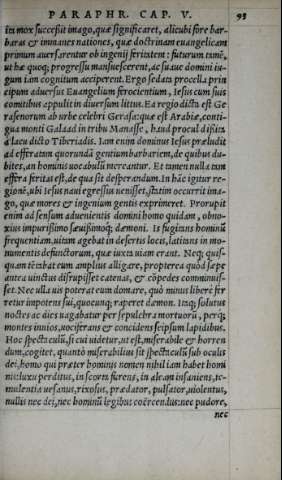 PARAPHR. CAP. V. 95
ita mox successit imago, quæ significaret, alicubi fore bar-
baras & immanes nationes, quæ doctrinam euangelicam
primum auersarentur ob ingenij feritatem: futurum tamē,
ut hæ quoq; progressu mansuescerent, ac suaue domini iu-
gum iam cognitum acciperent. Ergo sedata procella prin
cipum aduersus Euangelium ferocientium, Iesus cum suis
comitibus appulit in diuersum littus. Ea regio dicta est Ge
rasenorum ab urbe celebri Gerasa: quæ est Arabiæ, conti-
gua monti Galaad in tribu Manasse, haud procul dissita
à lacu dicto Tiberiadis. Iam enim dominus Iesus præludit
ad efferatam quorundā gentium barbariem, de quibus du-
bites, an hominis uocabulū mereantur. Et tamen nulla tam
effera feritas est, de qua sit desperandum. In hāc igitur re-
gionē, ubi Iesus naui egressus uenisset, statim occurrit ima-
go, quæ mores & ingenium gentis exprimeret. Prorupit
enim ad sensum aduenientis domini homo quidam, obno-
xius impurissimo sæuissimoq; dæmoni. Is fugitans hominū
frequentiam, uitam agebat in desertis locis, latitans in mo-
numentis defunctorum, quæ iuxta uiam erant. Neq; quis-
quam tētabat eum amplius alligare, propterea quòd sæpe
antea uinctus disrupisset catenas, & cōpedes comminuis-
set. Nec ulla uis poterat eum domare, quò minus liberè fer
retur impotens sui, quocunq; raperet dæmon. Itaq; solutus
noctes ac dies uagabatur per sepulchra mortuorū, perq;
montes inuios, uociferans & concidens seipsum lapidibus.
Hoc spectaculū, si cui uidetur, ut est, miserabile & horren
dum, cogitet, quantò miserabilius sit spectaculū sub oculis
dei, homo qui præter hominis nomen nihil iam habet homi
nis: luxu perditus, in scorta furens, in aleam insaniens, te-
mulentia uesanus, rixosus, prædator, pulsator, uiolentus,
nullis nec dei, nec hominū legibus coërcendus: nec pudore,
nec